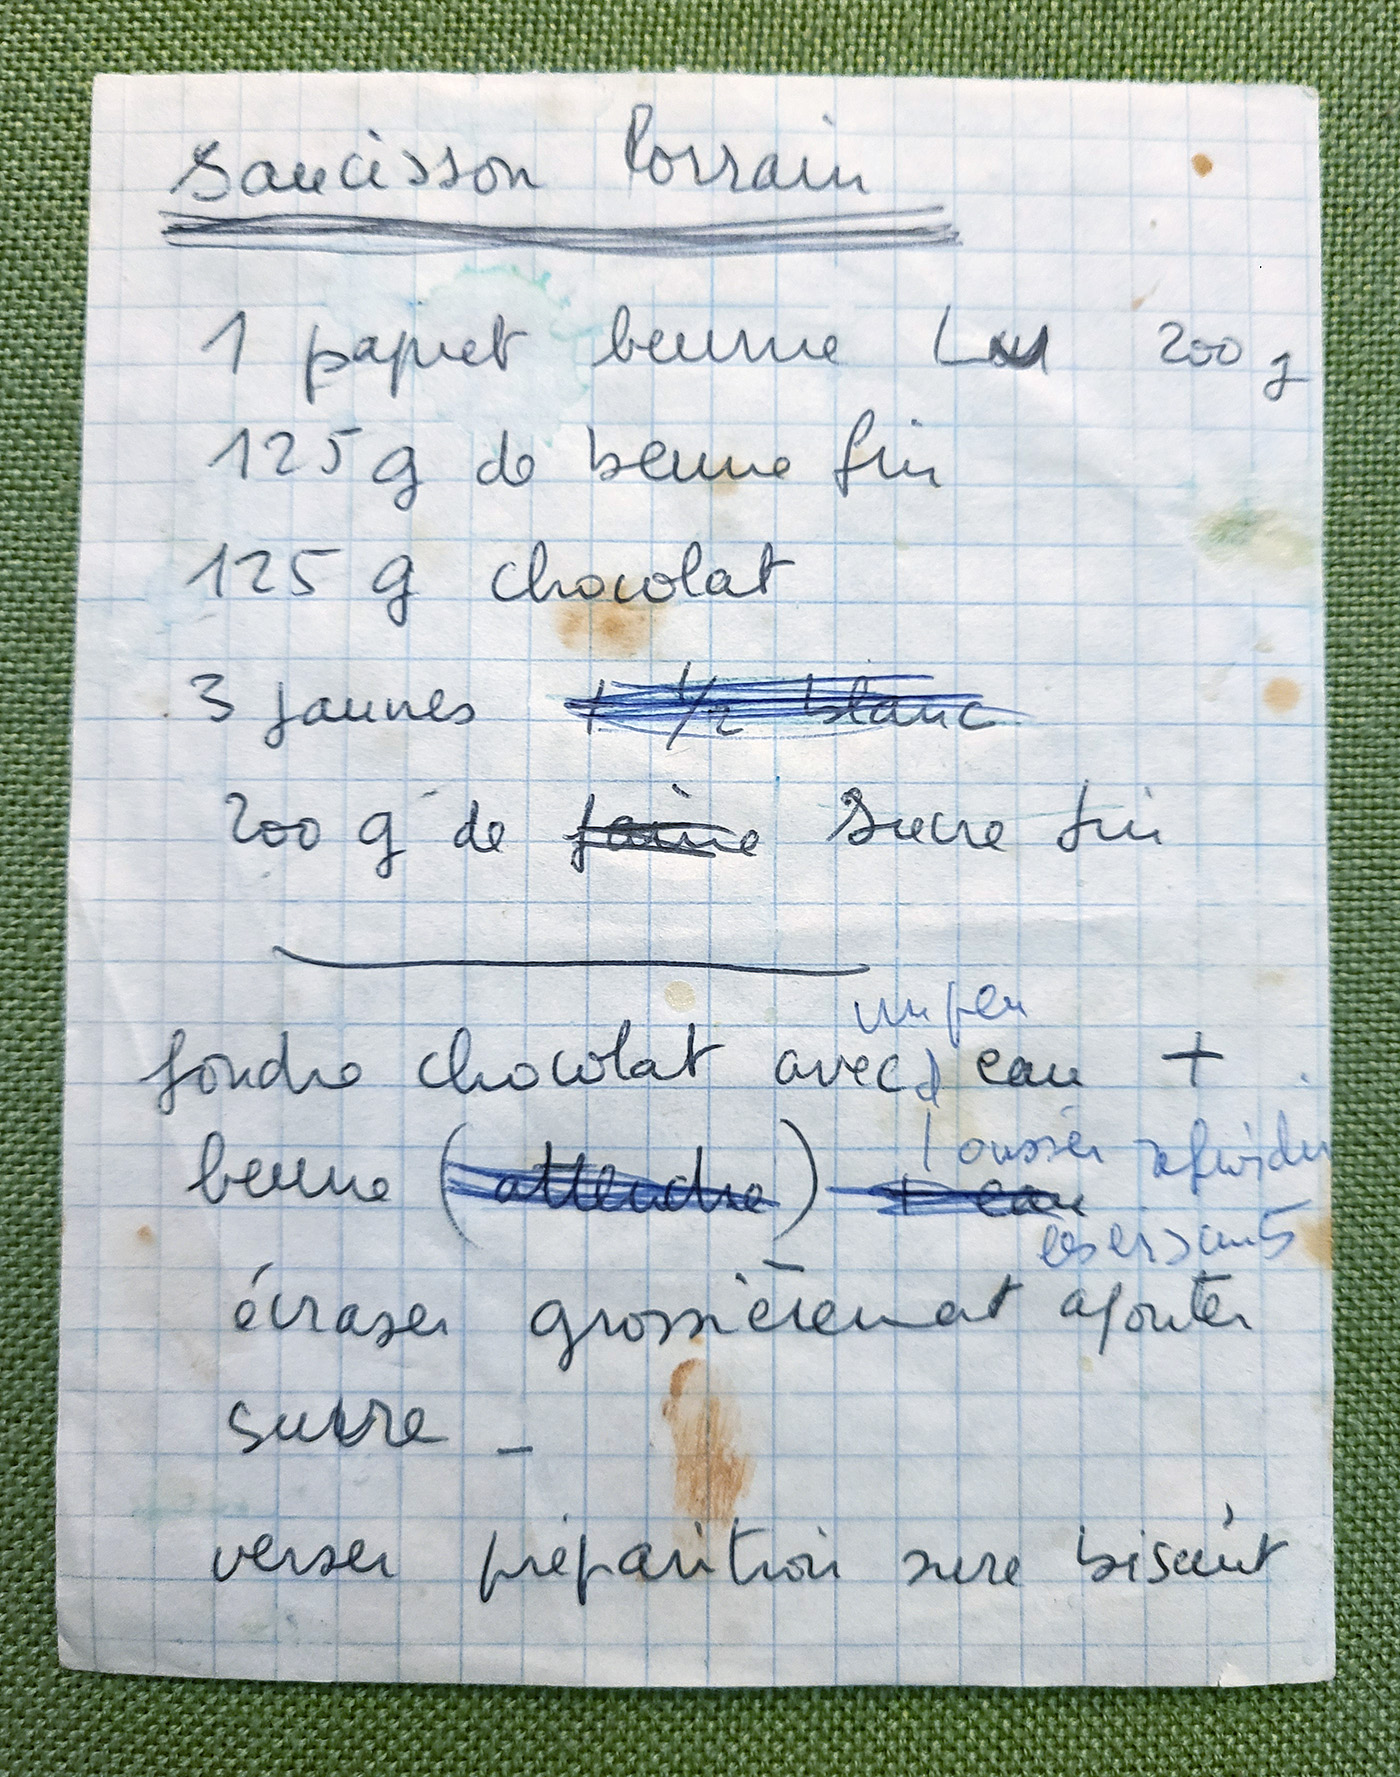 Saucisson lorrain
1 paquet beurre Lu 200 g
125 g de beurre fin
125 g chocolat
3 jaunes + 1/2 blanc
200 g de farine Sucre fin
un peu
fondre chocolat avec d eau +
beurre (attendre) + eau
laisser refroidir
écraser grossièrement ajouter
sucre -
verser préparation sure biscuit